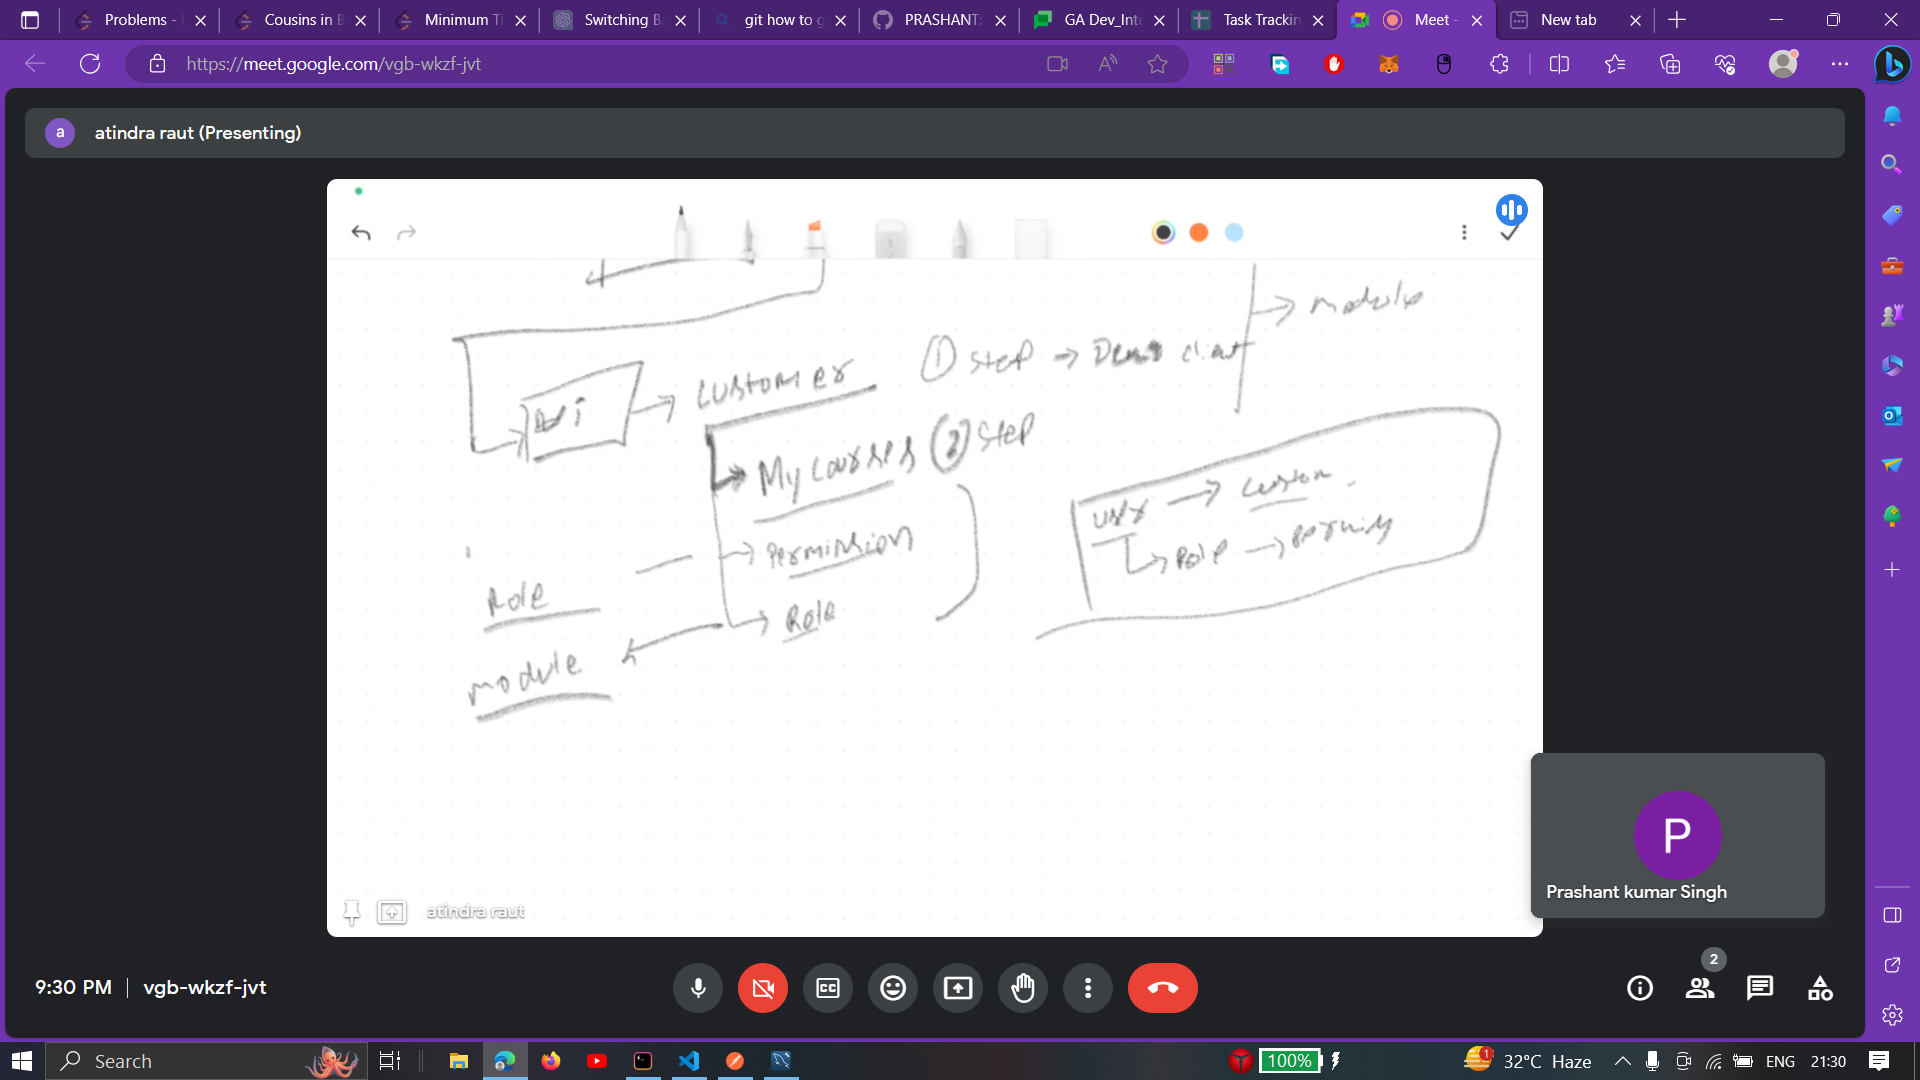 Problems -
Cousins in B
Minimum Ti
Switching Ba
git how to g
PRASHANT:
GA Dev_Inte
Task Trackin
Meet -
New tab
https://meet.google.com/vgb-wkzf-jvt
a
atindra raut (Presenting)
module
① step → Demo client
customer
My courses ② step
user → custom
Permission
Role →
Role
Role
module
P
Prashant kumar Singh
atindra raut
9:30 PM | vgb-wkzf-jvt
2
Search
100%
1
32°C Haze
ENG
21:30